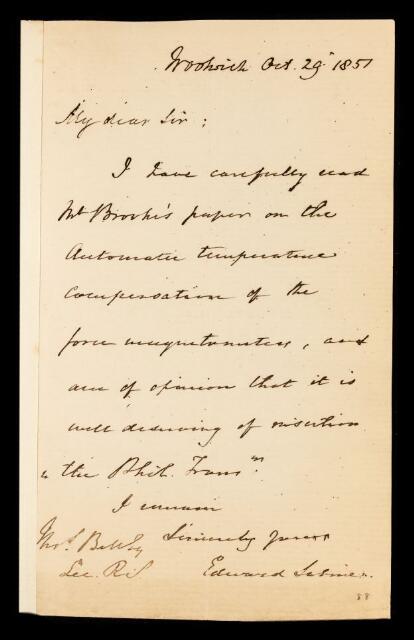 Woolwich Oct. 29 1851
My dear Sir;
I have carefully read
Mr Brooke's paper on the
Automatic temperature
Compensation of the
force magnetometers, and
am of opinion that it is
well deserving of insertion
in the Phil. Trans ns.
I remain
Sincerely yours
Edward Sabine.
Thos. Bell Esq
Sec. R.S
88